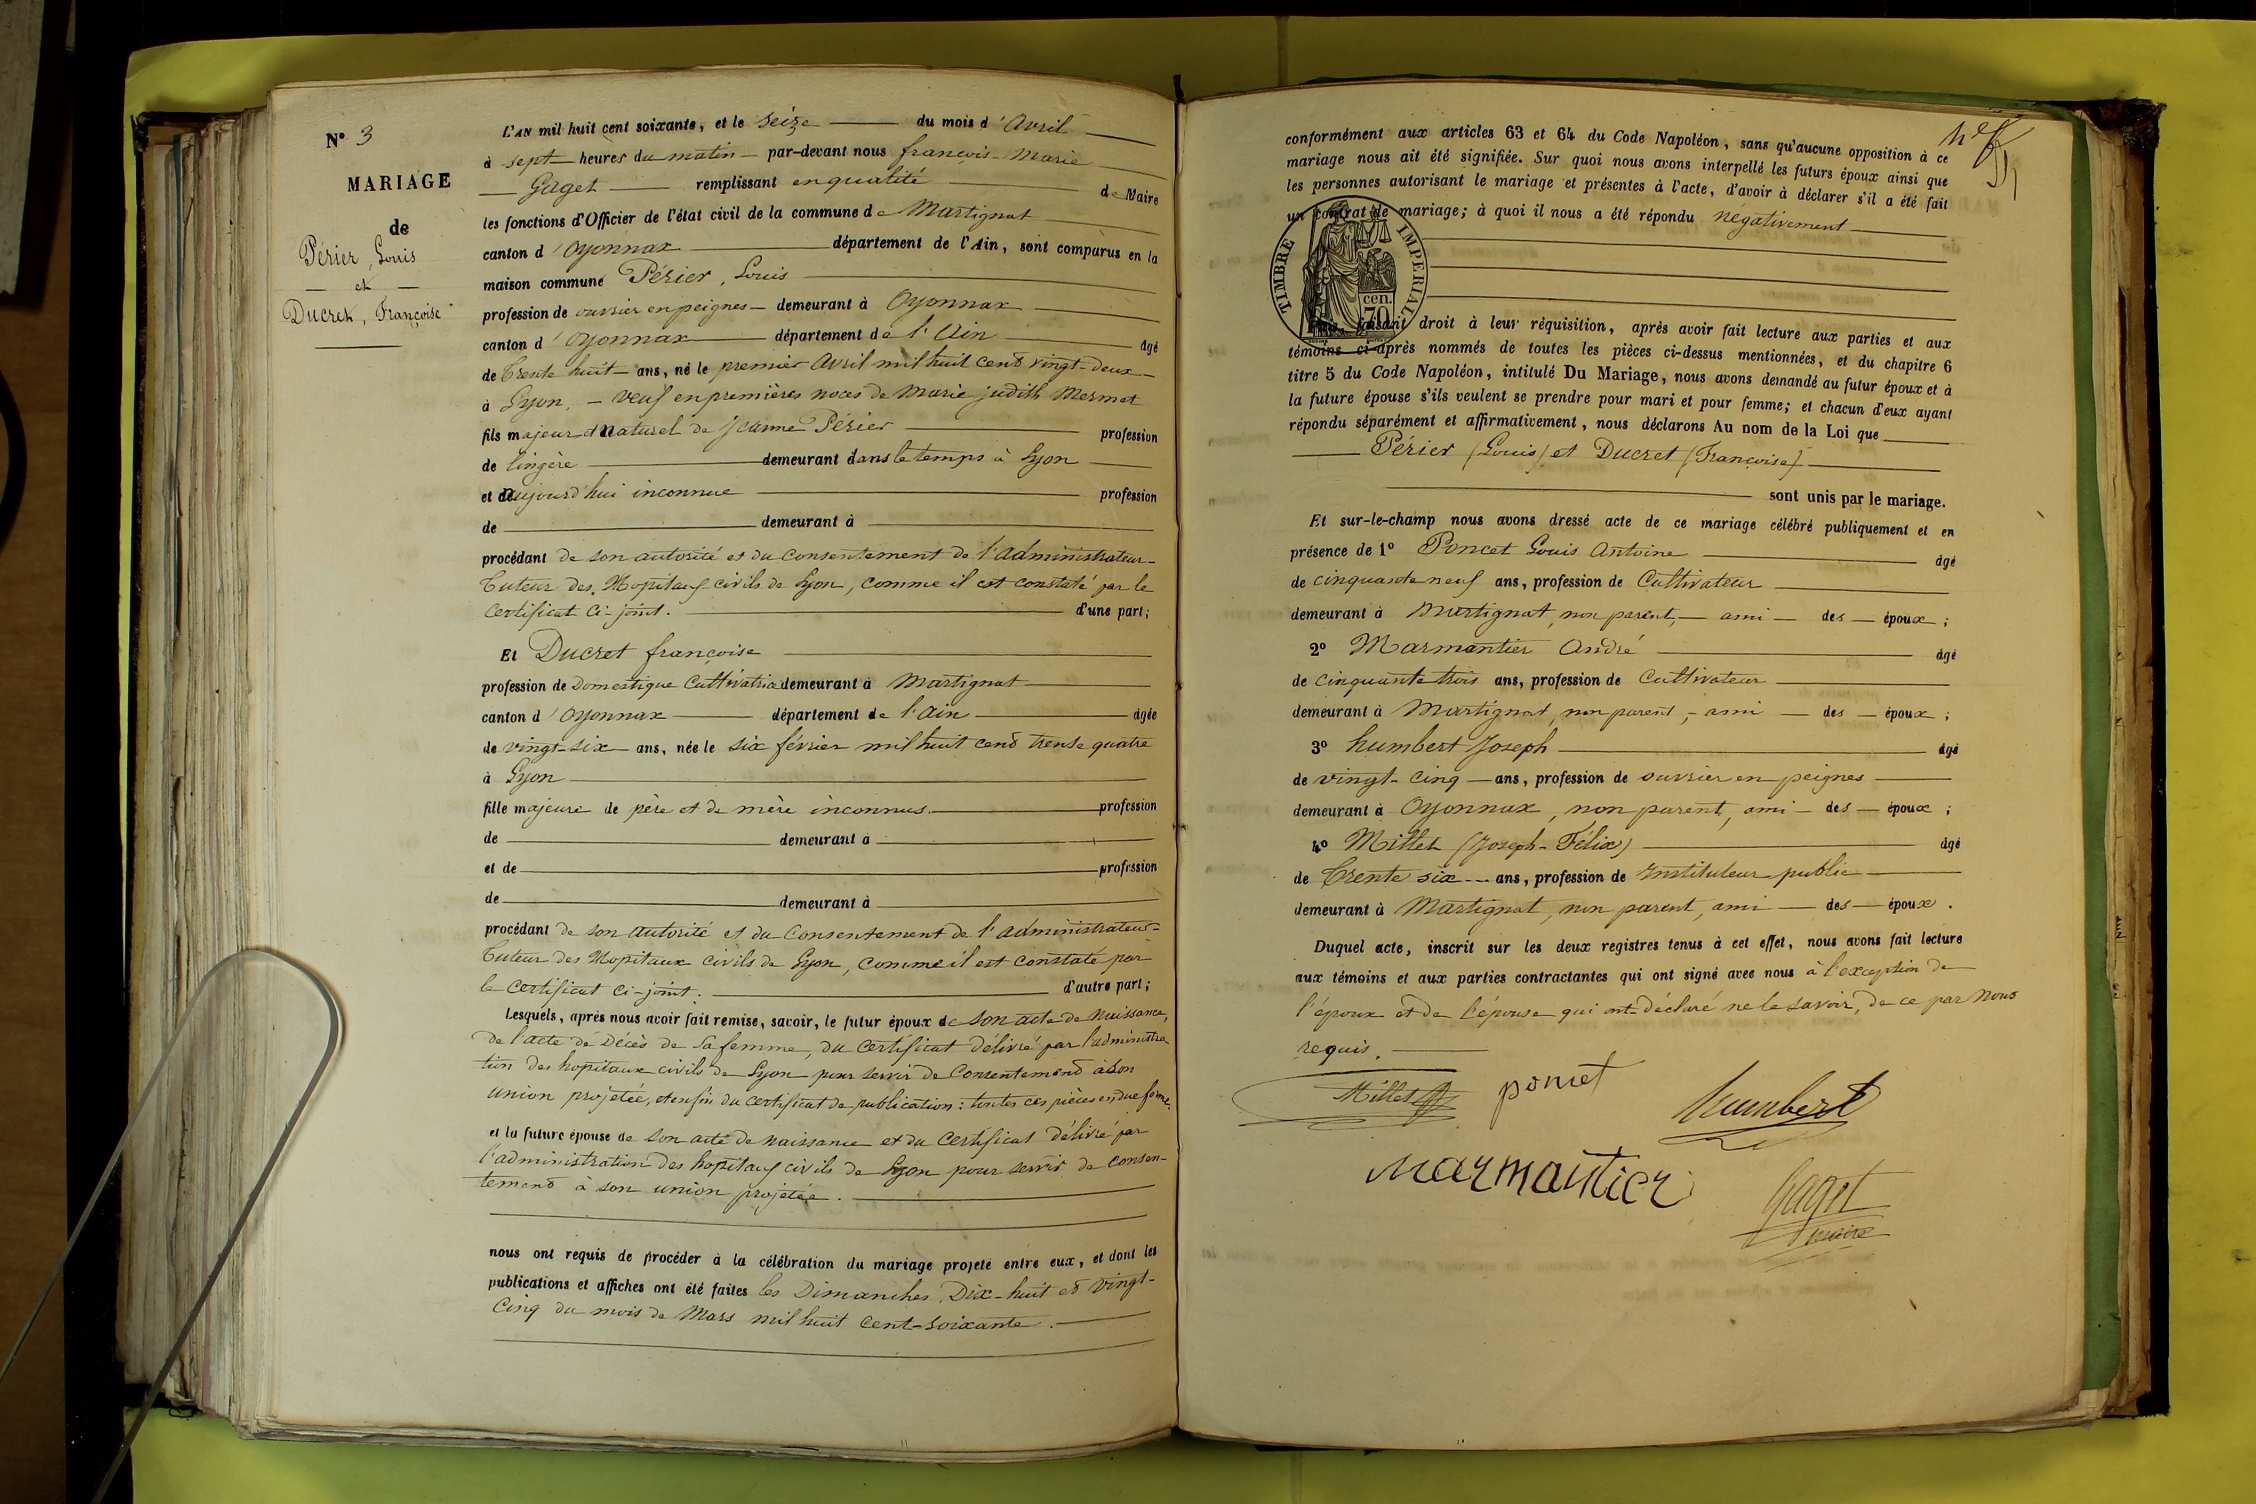 N° 3
MARIAGE
de
Périer, Louis
et
Ducret, Françoise
L'AN mil huit cent soixante, et le seize du mois d'Avril
à sept heures du matin par-devant nous françois-Marie
Gaget remplissant en qualité de Maire
les fonctions d'Officier de l'état civil de la commune de Martignat
canton d'Oyonnax département de l'Ain, sont comparus en la
maison commune Périer, Louis
profession de ouvrier en peignes demeurant à Oyonnax
canton d'Oyonnax département de l'Ain âgé
de Trente huit ans, né le premier Avril mil huit cent vingt-deux
à Lyon, veuf en premières noces de Marie judith Mermet
fils majeur et naturel de Jeanne Périer profession
de lingère demeurant dans le temps à Lyon
et de aujourd'hui inconnue profession
de demeurant à
procédant de son autorité et du consentement de l'administrateur-
Tuteur des Hopitaux civils de Lyon, comme il est constaté par le
certificat ci-joint. d'une part;
Et Ducret françoise
profession de Domestique Cultivatrice demeurant à Martignat
canton d'Oyonnax département de l'Ain âgée
de vingt-six ans, née le six février mil huit cent trente quatre
à Lyon
fille majeure de père et de mère inconnus profession
de demeurant à
et de profession
de demeurant à
procédant de son autorité et du consentement de l'administrateur-
Tuteur des Hopitaux civils de Lyon, comme il est constaté par
le certificat ci-joint. d'autre part;
Lesquels, après nous avoir fait remise, savoir, le futur époux de son acte de Naissance,
de l'acte de Décès de sa femme, du certificat délivré par l'administra-
tion des hopitaux civils de Lyon pour servir de consentement à son
union projetée, et enfin du certificat de publication: toutes ces pièces en due forme.
et la future épouse de son acte de naissance et du certificat délivré par
l'administration des hopitaux civils de Lyon pour servir de consen-
tement à son union projetée.
nous ont requis de procéder à la célébration du mariage projeté entre eux, et dont les
publications et affiches ont été faites les Dimanches Dix-huit et vingt-
cinq du mois de Mars mil huit cent-soixante.
conformément aux articles 63 et 64 du Code Napoléon, sans qu'aucune opposition à ce
mariage nous ait été signifiée. Sur quoi nous avons interpellé les futurs époux ainsi que
les personnes autorisant le mariage et présentes à l'acte, d'avoir à déclarer s'il a été fait
un contrat de mariage; à quoi il nous a été répondu négativement
TIMBRE IMPERIAL
cen.
70
faisant droit à leur réquisition, après avoir fait lecture aux parties et aux
témoins ci-après nommés de toutes les pièces ci-dessus mentionnées, et du chapitre 6
titre 5 du Code Napoléon, intitulé Du Mariage, nous avons demandé au futur époux et à
la future épouse s'ils veulent se prendre pour mari et pour femme; et chacun d'eux ayant
répondu séparément et affirmativement, nous déclarons Au nom de la Loi que
Périer (Louis) et Ducret (Françoise)
sont unis par le mariage.
Et sur-le-champ nous avons dressé acte de ce mariage célébré publiquement et en
présence de 1° Poncet Louis Antoine âgé
de cinquante neuf ans, profession de Cultivateur
demeurant à Martignat, non parent, ami des époux;
2° Marmantier André âgé
de cinquante trois ans, profession de Cultivateur
demeurant à Martignat, non parent, ami des époux;
3° humbert Joseph âgé
de vingt-cinq ans, profession de ouvrier en peignes
demeurant à Oyonnax, non parent, ami des époux;
4° Millet (Joseph-Félix) âgé
de Trente six ans, profession de Instituteur public
demeurant à Martignat, non parent, ami des époux.
Duquel acte, inscrit sur les deux registres tenus à cet effet, nous avons fait lecture
aux témoins et aux parties contractantes qui ont signé avec nous à l'exception de
l'époux et de l'épouse qui ont déclaré ne le savoir, de ce par Nous
requis.
Millet poncet humbert
Marmantier Gaget
maire